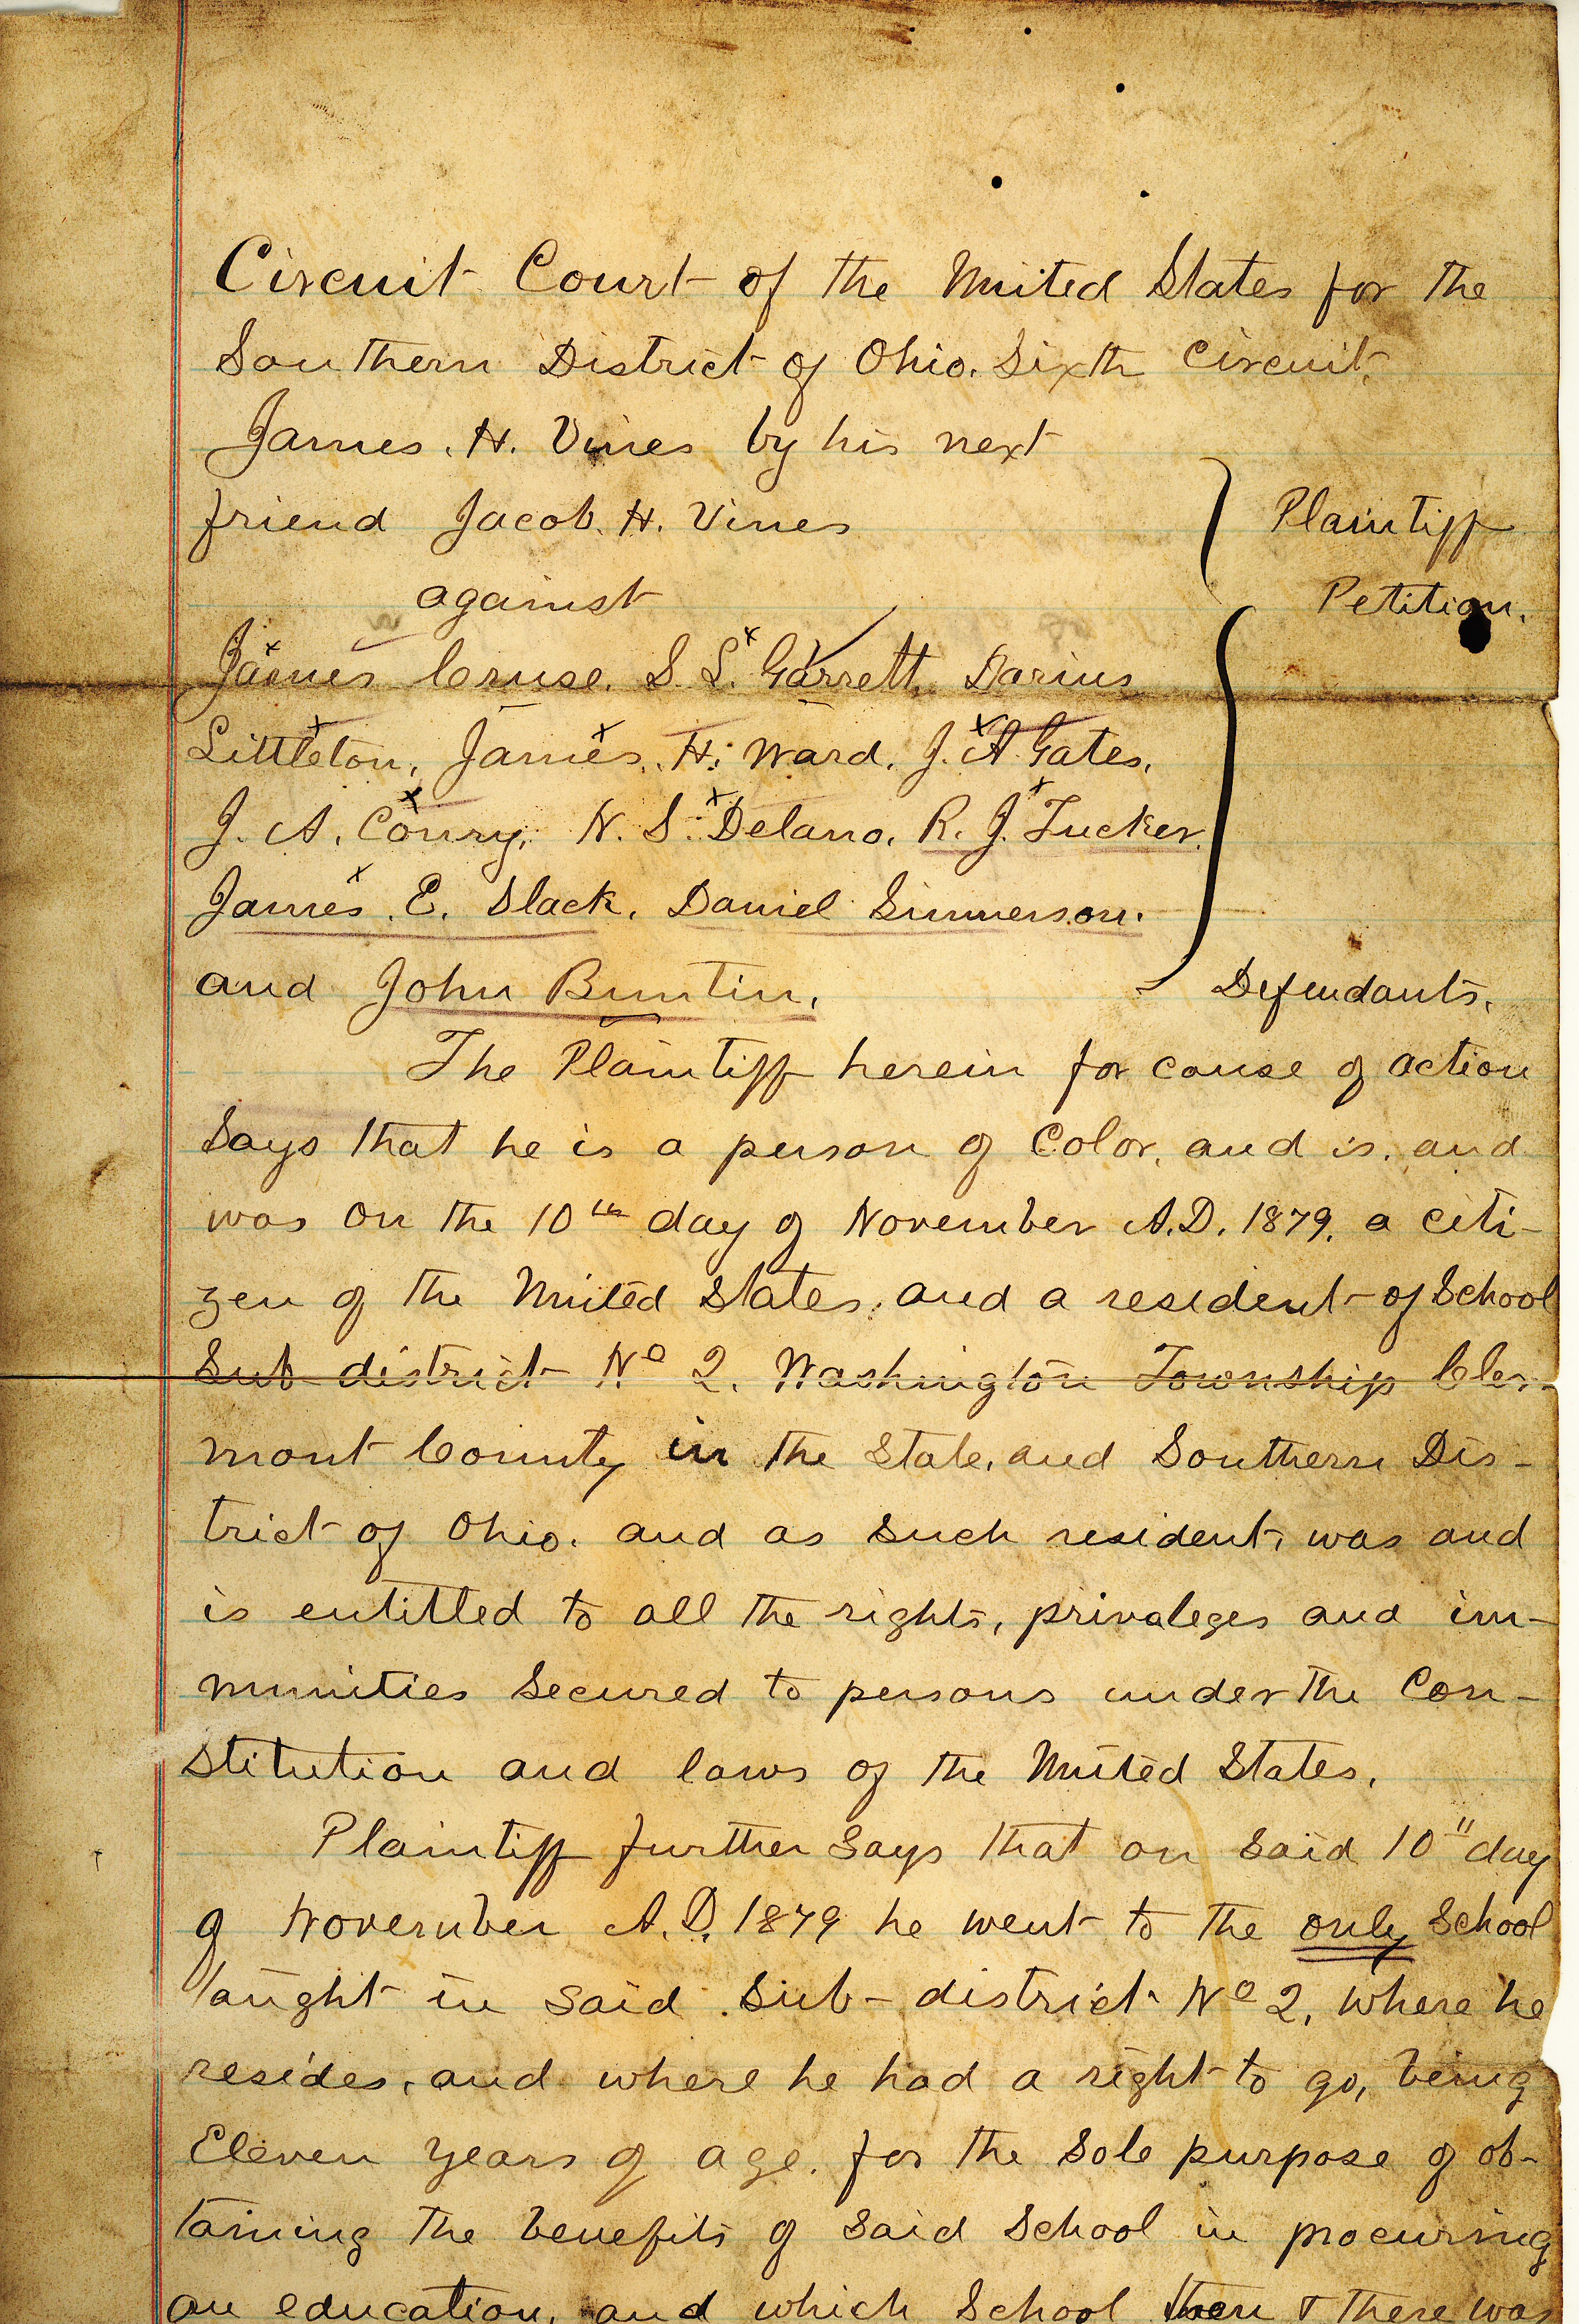 Circuit Court of the United States for the
Southern District of Ohio. Sixth Circuit.
James. H. Vines by his next
friend Jacob. H. Vines
Plaintiff
against
Petition.
James Cruse. S. L. Garrett, Darius
Littleton, James. H. Ward. J. A Gates.
J. A. Coury, N. S. Delano. R. J. Tucker.
James. E. Slack. Daniel Simmerson.
and John Buntin.
Defendants.
The Plaintiff herein for cause of action
says that he is a person of Color, and is, and
was on the 10th day of November A.D. 1879, a citi-
zen of the United States, and a resident of School
Sub district No 2. Washington Township Cler-
mont County in the State, and Southern Dis-
trict of Ohio. and as such resident, was and
is entitled to all the rights, privaleges and im-
munities secured to persons under the Con-
stitution and laws of the United States.
Plaintiff further says that on said 10" day
of November A.D. 1879 he went to the only School
taught in said Sub-district No 2, where he
resides, and where he had a right to go, being
Eleven years of age. for the sole purpose of ob-
taining the benefits of said School in procuring
an education, and which School then & there was